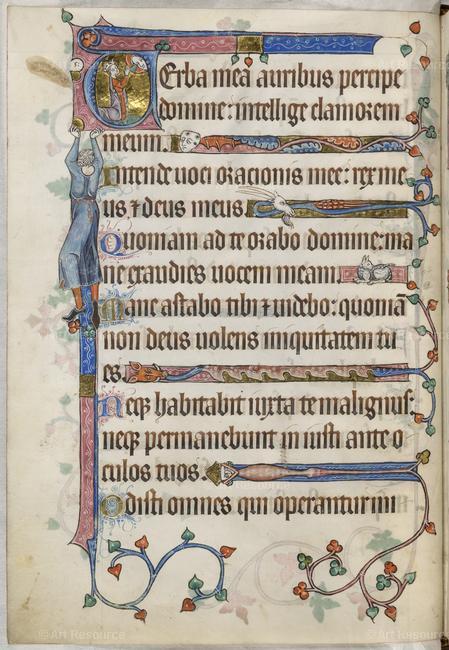 Erba mea auribus percipe
domine: intellige clamorem
meum.
Intende uoci oracionis mee: rex me
us, ⁊ deus meus.
Quoniam ad te orabo domine: ma
ne exaudies uocem meam.
Mane astabo tibi ⁊ uidebo: quoniā
non deus uolens iniquitatem tu
es.
Neqꝫ habitabit iuxta te malignus:
neqꝫ permanebunt iniusti ante o
culos tuos.
Odisti omnes qui operantur ini
© Art Resource
© Art Resource